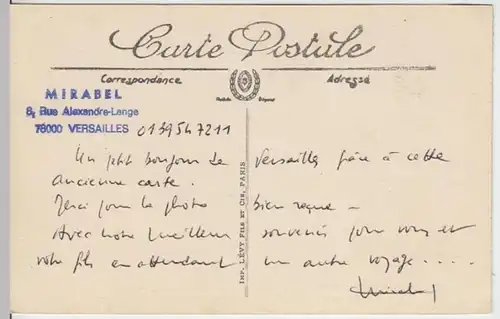 Carte Postale
Correspondance
Adresse
MIRABEL
8, Rue Alexandre-Lange
78000 VERSAILLES 0139547211
Un ptit bonjour de Versailles grâce à cette
ancienne carte.
Merci pour la photo bien reçue -
Avec notre meilleur souvenir pour vous et
votre fils en attendant un autre voyage....
Mirabel
IMP. LÉVY FILS ET CIE, PARIS